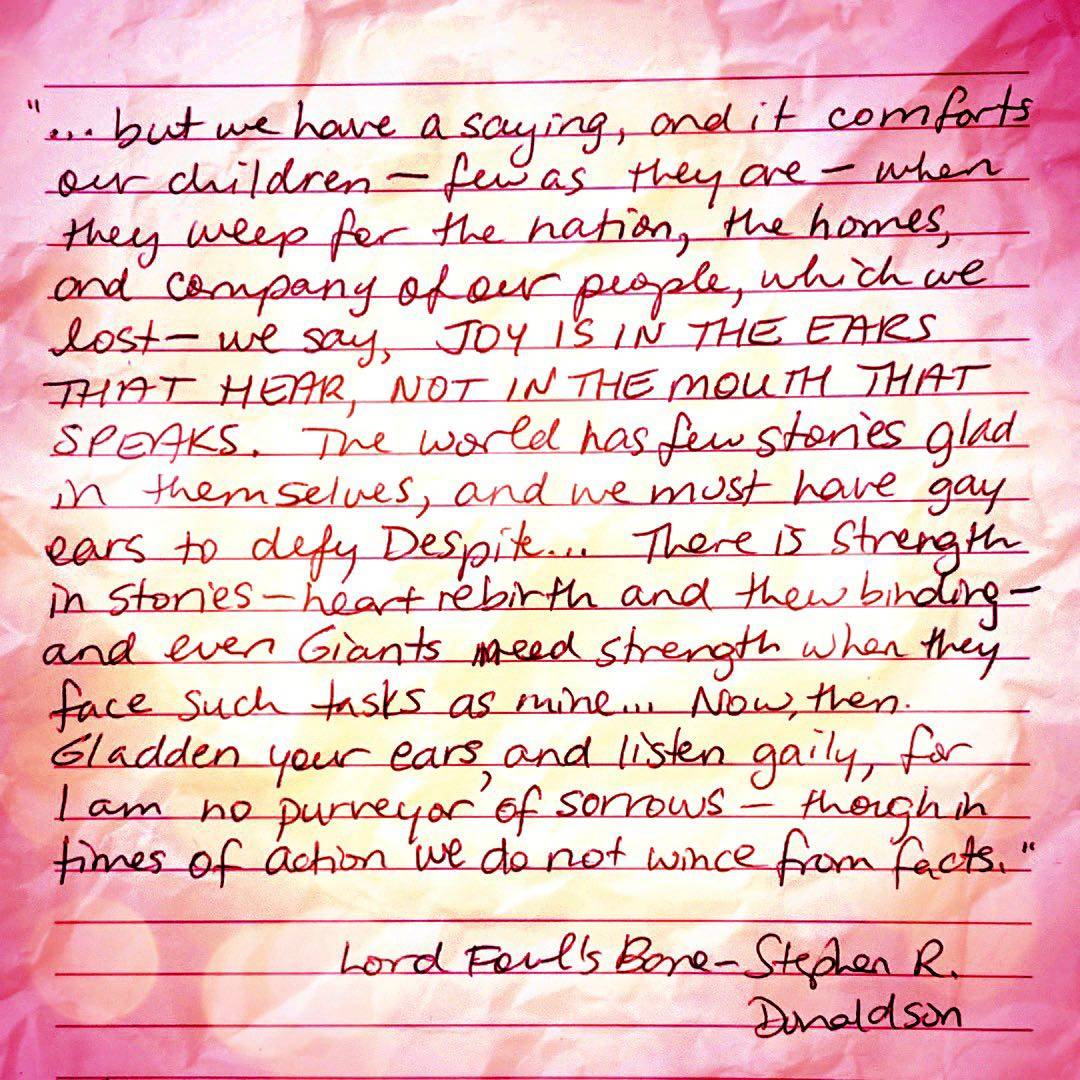 "... but we have a saying, and it comforts
our children — few as they are — when
they weep for the nation, the homes,
and company of our people, which we
lost — we say, JOY IS IN THE EARS
THAT HEAR, NOT IN THE MOUTH THAT
SPEAKS. The world has few stories glad
in themselves, and we must have gay
ears to defy Despite... There is strength
in stories — heart rebirth and thew binding —
and even Giants need strength when they
face such tasks as mine... Now, then.
Gladden your ears, and listen gaily, for
I am no purveyor of sorrows — though in
times of action we do not wince from facts."
Lord Foul's Bane — Stephen R.
Donaldson